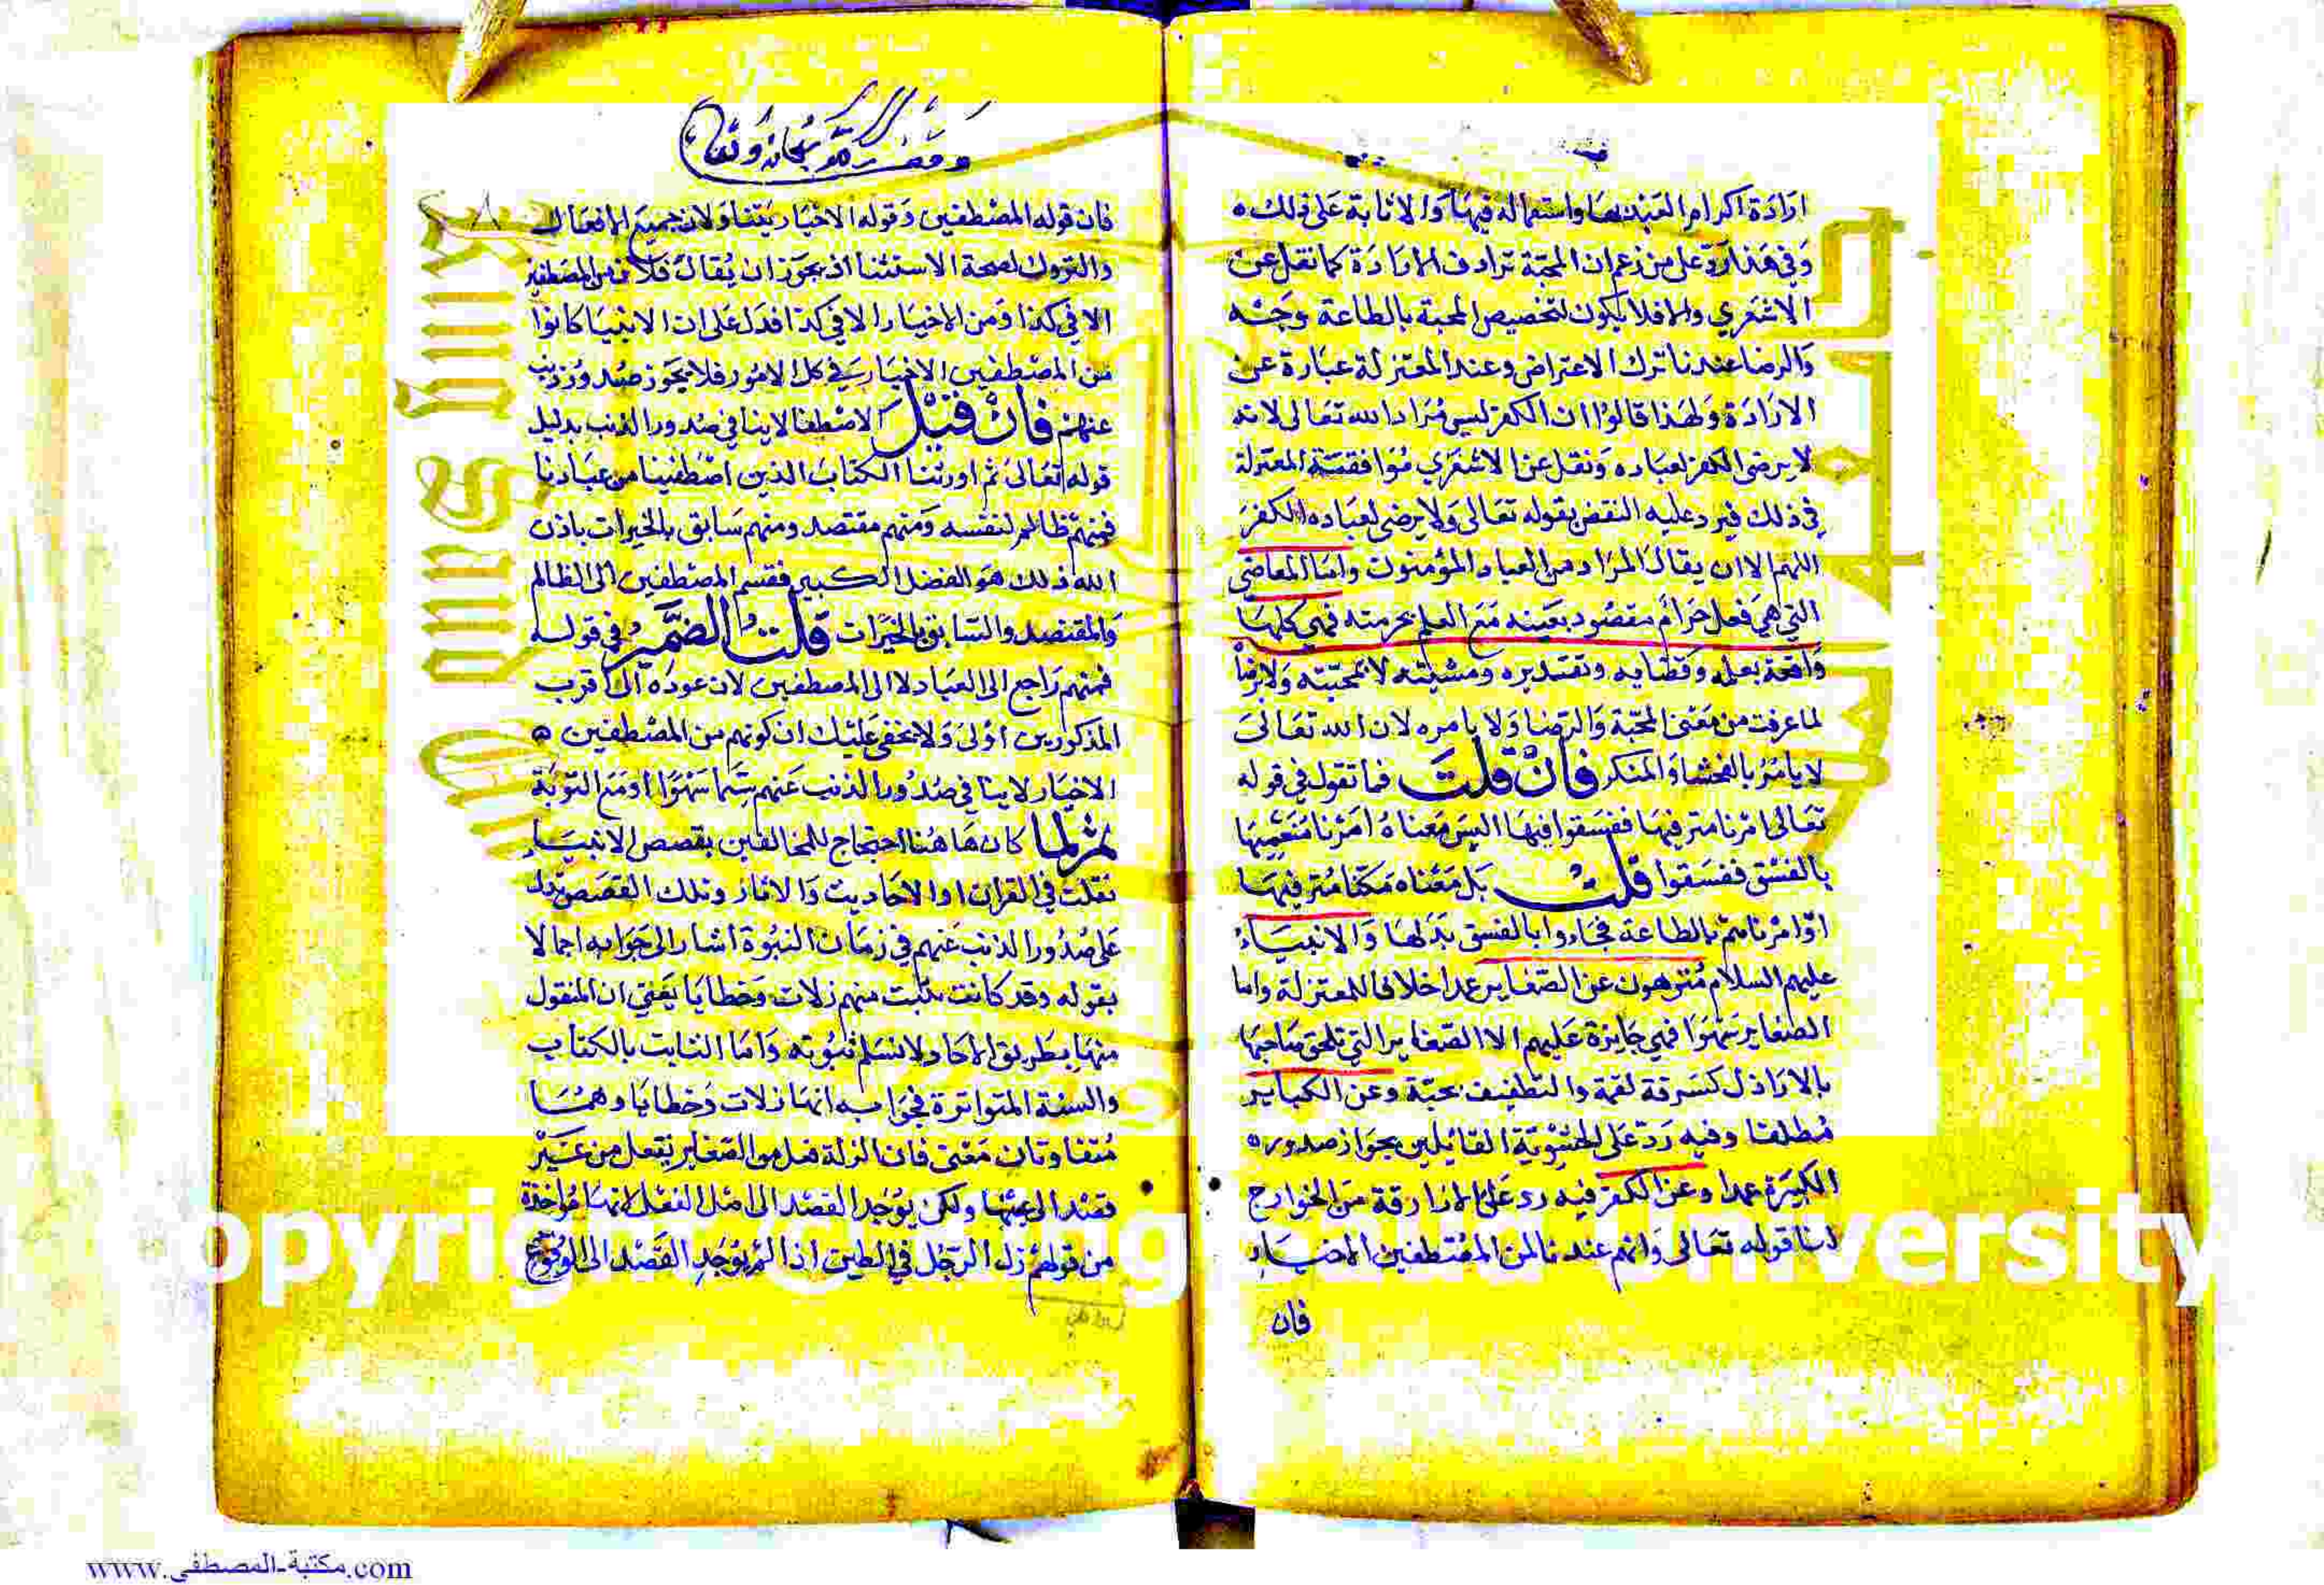 ارادة اكرام العبد بها واستعماله فيها والاثابة على ذلك
وفي هذا رد على من زعم ان المحبة ترادف الارادة كما نقل عن
الاشعري والا فلا يكون لتخصيص المحبة بالطاعة وجه
والرضا عندنا ترك الاعتراض وعند المعتزلة عبارة عن
الارادة ولهذا قالوا ان الكفر ليس مرادا لله تعالى لانه
لا يرضى الكفر لعباده ونقل عن الاشعري موافقة المعتزلة
في ذلك فيرد عليه النقض بقوله تعالى ولا يرضى لعباده الكفر
اللهم الا ان يقال المراد من العباد المؤمنون واما المعاصي
التي هي فعل حرام مقصود بعينه مع العلم بحرمته فهي كلها
واقعة بعلمه وقضايه وتقديره ومشيته لا بمحبته ولا برضا
لما عرفت من معنى المحبة والرضا ولا بامره لان الله تعالى
لا يامر بالفحشا والمنكر فان قلت فما تقول في قوله
تعالى امرنا مترفيها ففسقوا فيها اليس معناه امرنا متنعميها
بالفسق ففسقوا قلت بل معناه مكنا مترفيها
او امرناهم بالطاعة فجاءوا بالفسق بدلها والانبياء
عليهم السلام منزهون عن الصغاير عمدا خلافا للمعتزلة واما
الصغاير سهوا فهي جايزة عليهم الا الصغاير التي تلحق صاحبها
بالاراذل كسرقة لقمة والتطفيف بحبة وعن الكباير
مطلقا وفيه رد على الحشوية القائلين بجواز صدوره
الكبيرة عمدا وعن الكفر فيه رد على الازارقة من الخوارج
لنا قوله تعالى وانهم عندنا لمن المصطفين الاخيار
فان
وقف لله سبحانه وتعالى
فان قوله المصطفين وقوله الاخيار يتناولان جميع الافعال
والتروك لصحة الاستثنا اذ يجوز ان يقال فلان من المصطفين
الا في كذا ومن الاخيار الا في كذا فدل على ان الانبيا كانوا
من المصطفين الاخيار في كل الامور فلا يجوز صدور ذنب
عنهم فان قيل الاصطفا لا ينافي صدور الذنب بدليل
قوله تعالى ثم اورثنا الكتاب الذين اصطفينا من عبادنا
فمنهم ظالم لنفسه ومنهم مقتصد ومنهم سابق بالخيرات باذن
الله ذلك هو الفضل الكبير فقسم المصطفين الى الظالم
والمقتصد والسابق بالخيرات قلت الضمير في قوله
فمنهم راجع الى العباد لا الى المصطفين لان عوده الى اقرب
المذكورين اولى ولا يخفى عليك ان كونهم من المصطفين
الاخيار لا ينافي صدور الذنب عنهم سيما سهوا او مع التوبة
ثم لما كان هاهنا احتجاج للمخالفين بقصص الانبياء
نقلت في القران او الاحاديث والاثار وتلك القصص تدل
على صدور الذنب عنهم في زمان النبوة اشار الى جوابه اجمالا
بقوله وقد كانت منهم زلات وخطايا يعني ان المنقول
منها بطريق الاحاد لا نسلم ثبوته واما الثابت بالكتاب
والسنة المتواترة فجوابه انها زلات وخطايا وهما
متفاوتان معنى فان الزلة فعل من الصغاير يفعل من غير
قصد الى عينها ولكن يوجد القصد الى اصل الفعل لانها ماخوذة
من قولهم زل الرجل في الطين اذا لم يوجد القصد الى الوقوع
opyright University
www.مكتبة-المصطفى.com